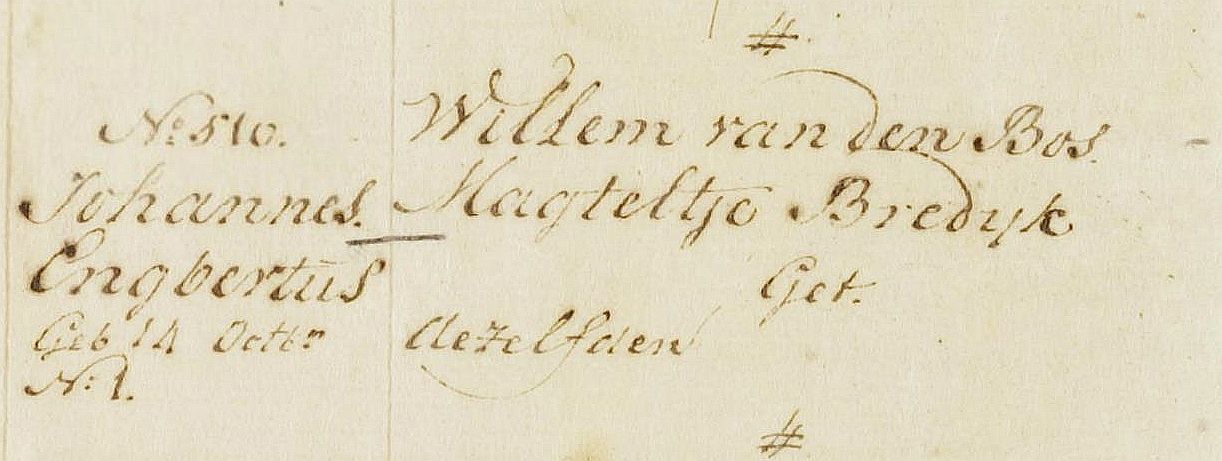 #
No: 510.
Willem van den Bos
Johannes.
Magteltje Bredyk
Engbertus
Get.
Geb 14 Octbr
dezelfden
No: 1.
#